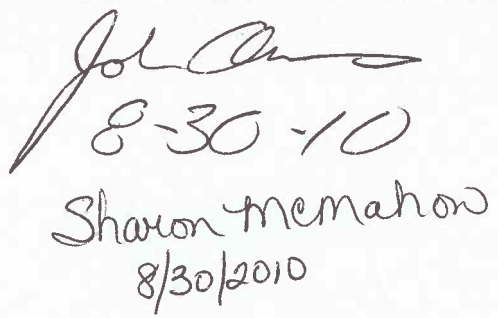 John
8-30-10
Sharon McMahon
8/30/2010